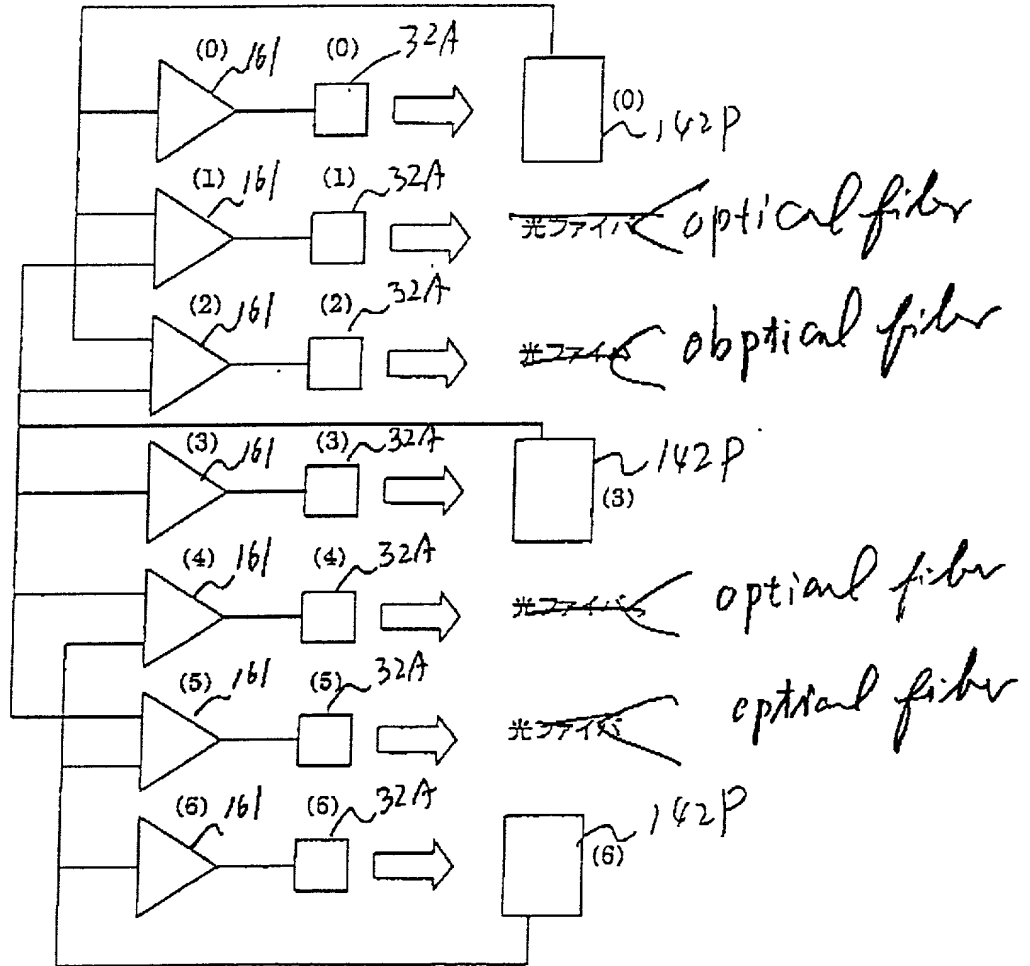 (0) 161 (0) 32A
(0) 142P
(1) 161 (1) 32A
光ファイバ optical fiber
(2) 161 (2) 32A
光ファイバ obptical fiber
(3) 161 (3) 32A
142P
(3)
(4) 161 (4) 32A
光ファイバ optical fiber
(5) 161 (5) 32A
光ファイバ optical fiber
(6) 161 (6) 32A
142P
(6)